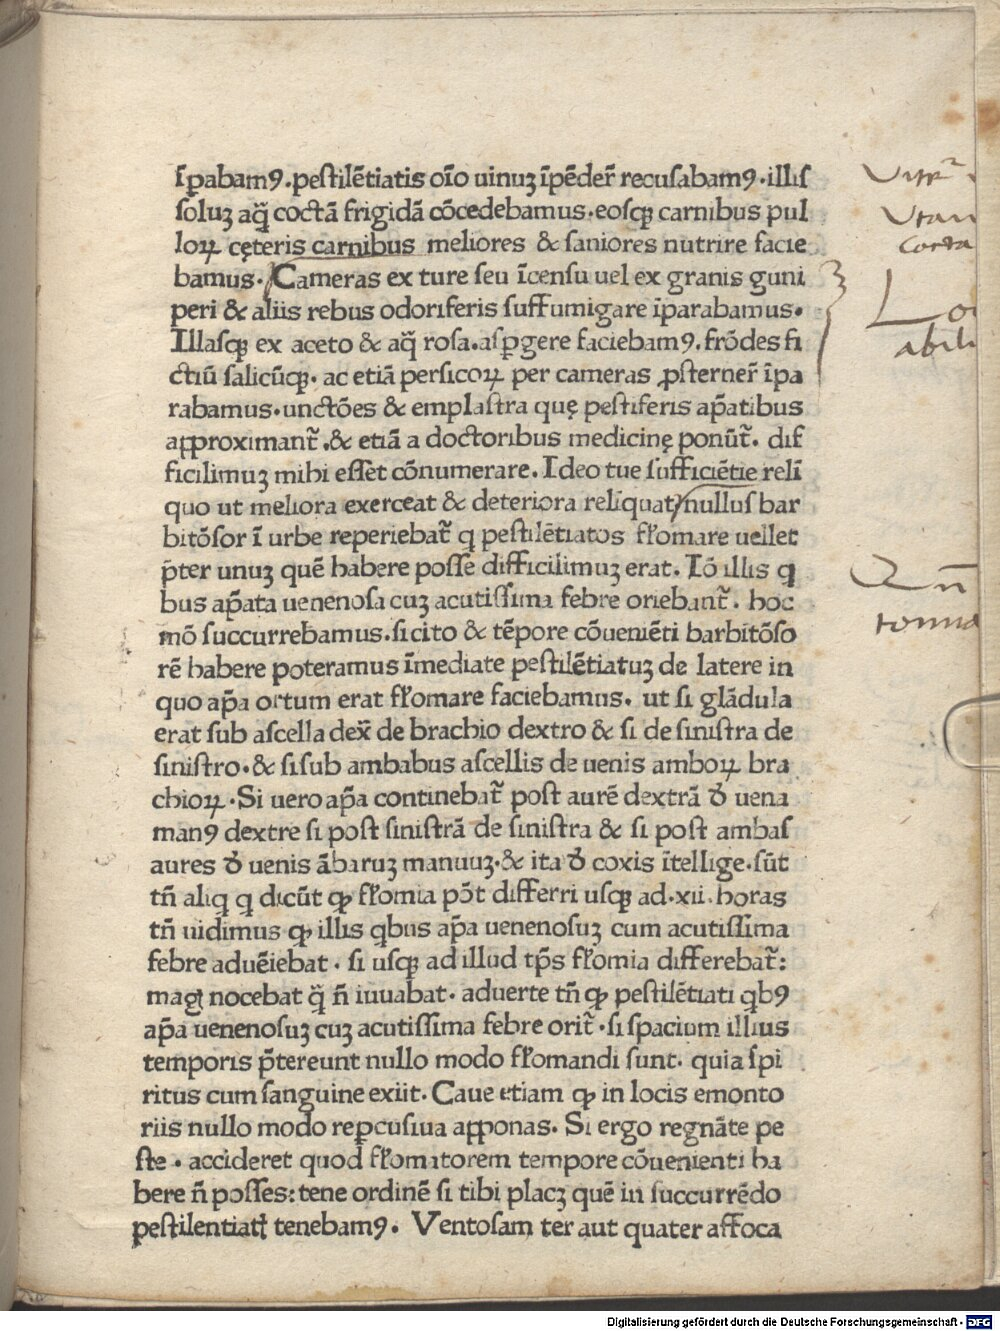 ĩpabamꝰ.pestilẽtiatis oĩo uinuꝫ ĩpẽder̃ recusabamꝰ.illis
soluꝫ aq̃ coctã frigidã cõcedebamus.eosqꝫ carnibus pul
loꝝ cęteris carnibus meliores & saniores nutrire facie
bamus. Cameras ex ture seu ĩcensu uel ex granis guni
peri & aliis rebus odoriferis suffumigare ĩparabamus.
Illasqꝫ ex aceto & aq̃ rosa.aspgere faciebamꝰ.frõdes fi
ctiũ salicũqꝫ. ac etiã persicoꝝ per cameras ꝓsterner̃ ĩpa
rabamus.unctões & emplastra quę pestiferis ap̃atibus
approximant̃.& etiã a doctoribus medicinę ponũt̃. dif
ficilimuꝫ mihi esset cõnumerare. Ideo tue sufficiẽtie reli
quo ut meliora exerceat & deteriora relĩquat/nullus bar
bitõsor ĩ urbe reperiebat̃ q pestilẽtiatos fl̃omare uellet
p̃ter unuꝫ quẽ habere posse difficilimuꝫ erat. Iõ illis q
bus ap̃ata uenenosa cuꝫ acutissima febre oriebant̃. hoc
mõ succurrebamus.si cito & tẽpore cõueniẽti barbitõso
rẽ habere poteramus ĩmediate pestilẽtiatuꝫ de latere in
quo ap̃a ortum erat fl̃omare faciebamus. ut si glãdula
erat sub ascella dex̃ de brachio dextro & si de sinistra de
sinistro.& si sub ambabus ascellis de uenis amboꝝ bra
chioꝝ.Si uero ap̃a continebat̃ post aurẽ dextrã ð uena
manꝰ dextre si post sinistrã de sinistra & si post ambas
aures ð uenis ãbaruꝫ manuuꝫ.& ita ð coxis ĩtellige.sũt
tñ aliq q dicũt ꝙ fl̃omia põt differri usqꝫ ad.xii.horas
tñ uidimus ꝙ illis qbus ap̃a uenenosuꝫ cum acutissima
febre aduẽiebat. si usqꝫ ad illud tp̃s fl̃omia differebat̃:
magꝭ nocebat q̃ ñ iuuabat. aduerte tñ ꝙ pestilẽtiati qbꝰ
ap̃a uenenosuꝫ cuꝫ acutissima febre orit̃.si spacium illius
temporis p̃tereunt nullo modo fl̃omandi sunt. quia spi
ritus cum sanguine exiit. Caue etiam ꝙ in locis emonto
riis nullo modo repcusiua apponas. Si ergo regnãte pe
ste. accideret quod fl̃omatorem tempore cõuenienti ha
bere ñ posses:tene ordinẽ si tibi placꝫ quẽ in succurrẽdo
pestilentiatꝭ tenebamꝰ. Ventosam ter aut quater affoca
cocta
abili
Digitalisierung gefördert durch die Deutsche Forschungsgemeinschaft - DFG